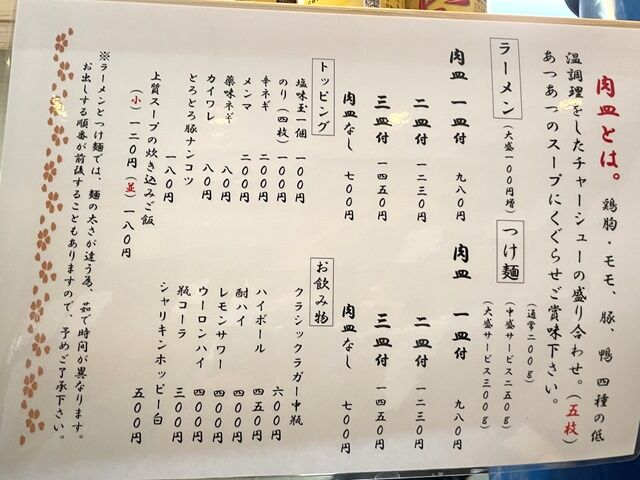 肉皿とは。 鶏胸・モモ、豚、鴨 四種の低
温調理をしたチャーシューの盛り合わせ。(五枚)
あつあつのスープにくぐらせご賞味下さい。
ラーメン
(大盛一00円増)
肉皿 一皿付 九八0円
二皿付 一二三0円
三皿付 一四五0円
肉皿なし 七00円
つけ麺
(通常二00g)
(中盛サービス二五0g)
(大盛サービス三00g)
肉皿 一皿付 九八0円
二皿付 一二三0円
三皿付 一四五0円
肉皿なし 七00円
トッピング
塩味玉一個 一00円
のり(四枚) 一00円
辛ネギ 二00円
メンマ 二00円
薬味ネギ 八0円
カイワレ 八0円
とろとろ豚ナンコツ 一八0円
上質スープの炊き込みご飯
(小)一二0円(並)一八0円
お飲み物
クラシックラガー中瓶 六00円
ハイボール 四五0円
酎ハイ 四00円
レモンサワー 四00円
ウーロンハイ 四00円
瓶コーラ 三00円
シャリキンホッピー白 五00円
※ラーメンとつけ麺では、麺の太さが違う為、茹で時間が異なります。
お出しする順番が前後することもありますので、予めご了承下さい。